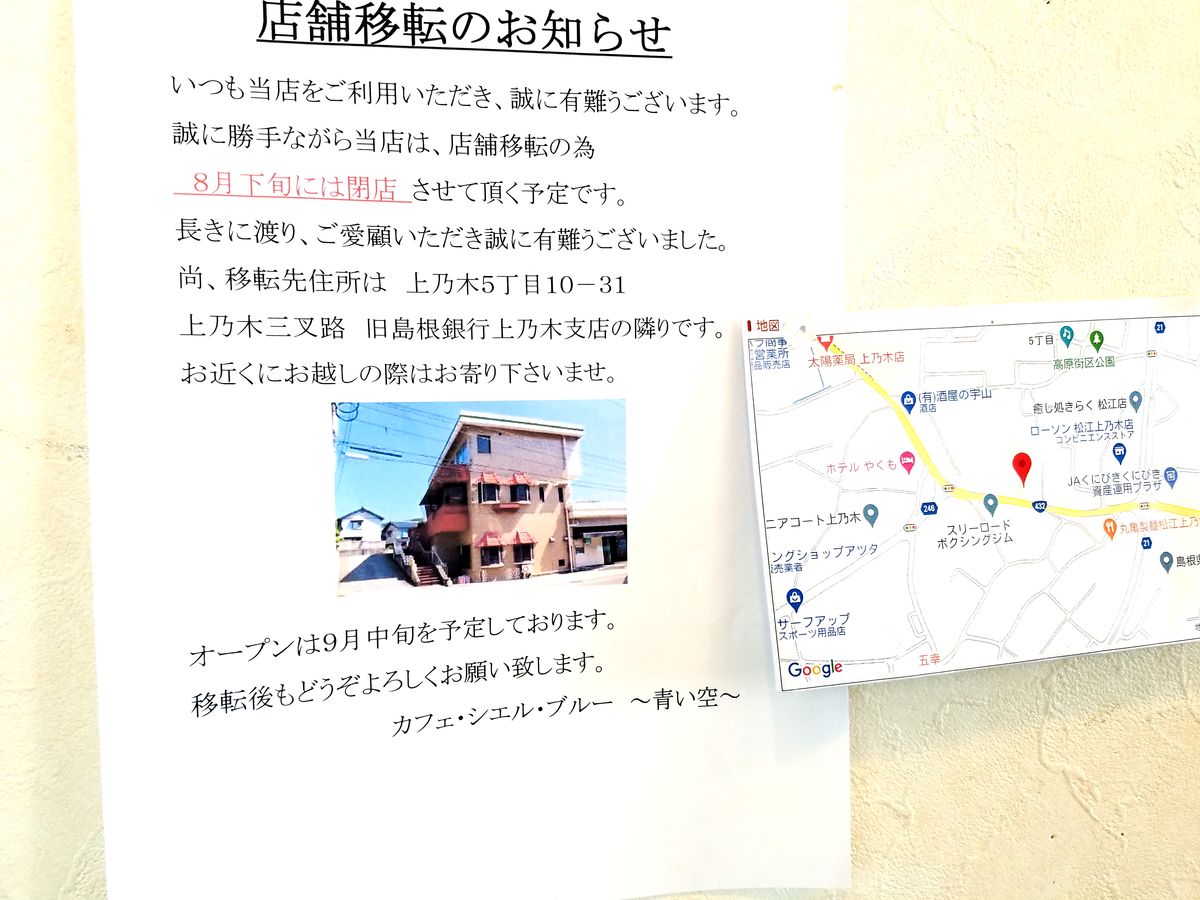 店舗移転のお知らせ
いつも当店をご利用いただき、誠に有難うございます。
誠に勝手ながら当店は、店舗移転の為
8月下旬には閉店 させて頂く予定です。
長きに渡り、ご愛顧いただき誠に有難うございました。
尚、移転先住所は 上乃木5丁目10－31
上乃木三叉路 旧島根銀行上乃木支店の隣りです。
お近くにお越しの際はお寄り下さいませ。
オープンは9月中旬を予定しております。
移転後もどうぞよろしくお願い致します。
カフェ・シエル・ブルー ～青い空～
地図
営業所
品販売店
太陽薬局 上乃木店
5丁目
高原街区公園
21
(有)酒屋の宇山
酒店
癒し処きらく 松江店
ローソン 松江上乃木店
コンビニエンスストア
ホテル やくも
JAくにびきくにびき
資産運用プラザ
246
432
ニアコート上乃木
スリーロード
ボクシングジム
丸亀製麺松江上乃
21
ングショップアツタ
販売業者
島根県
サーフアップ
スポーツ用品店
五幸
Google